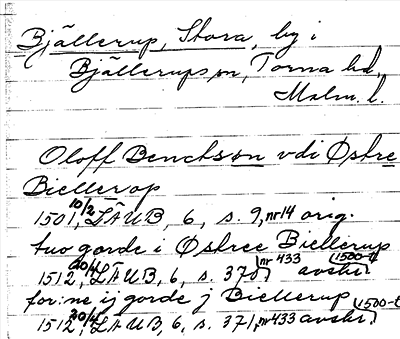 Bjällerup, Stora, by i
Bjällerups sn, Torna hd,
Malm. l.
Oloff Benctson vdi Østre
Biellerop
1501 10/2, LÄUB, 6, s. 9, nr 14 orig.
tuo gorde i Østree Biellerup
1512 20/4, LÄUB, 6, s. 370, nr 433 avskr. (1500-t
for:ne ij gorde j Biellerup
1512 20/4, LÄUB, 6, s. 371, nr 433 avskr. (1500-t